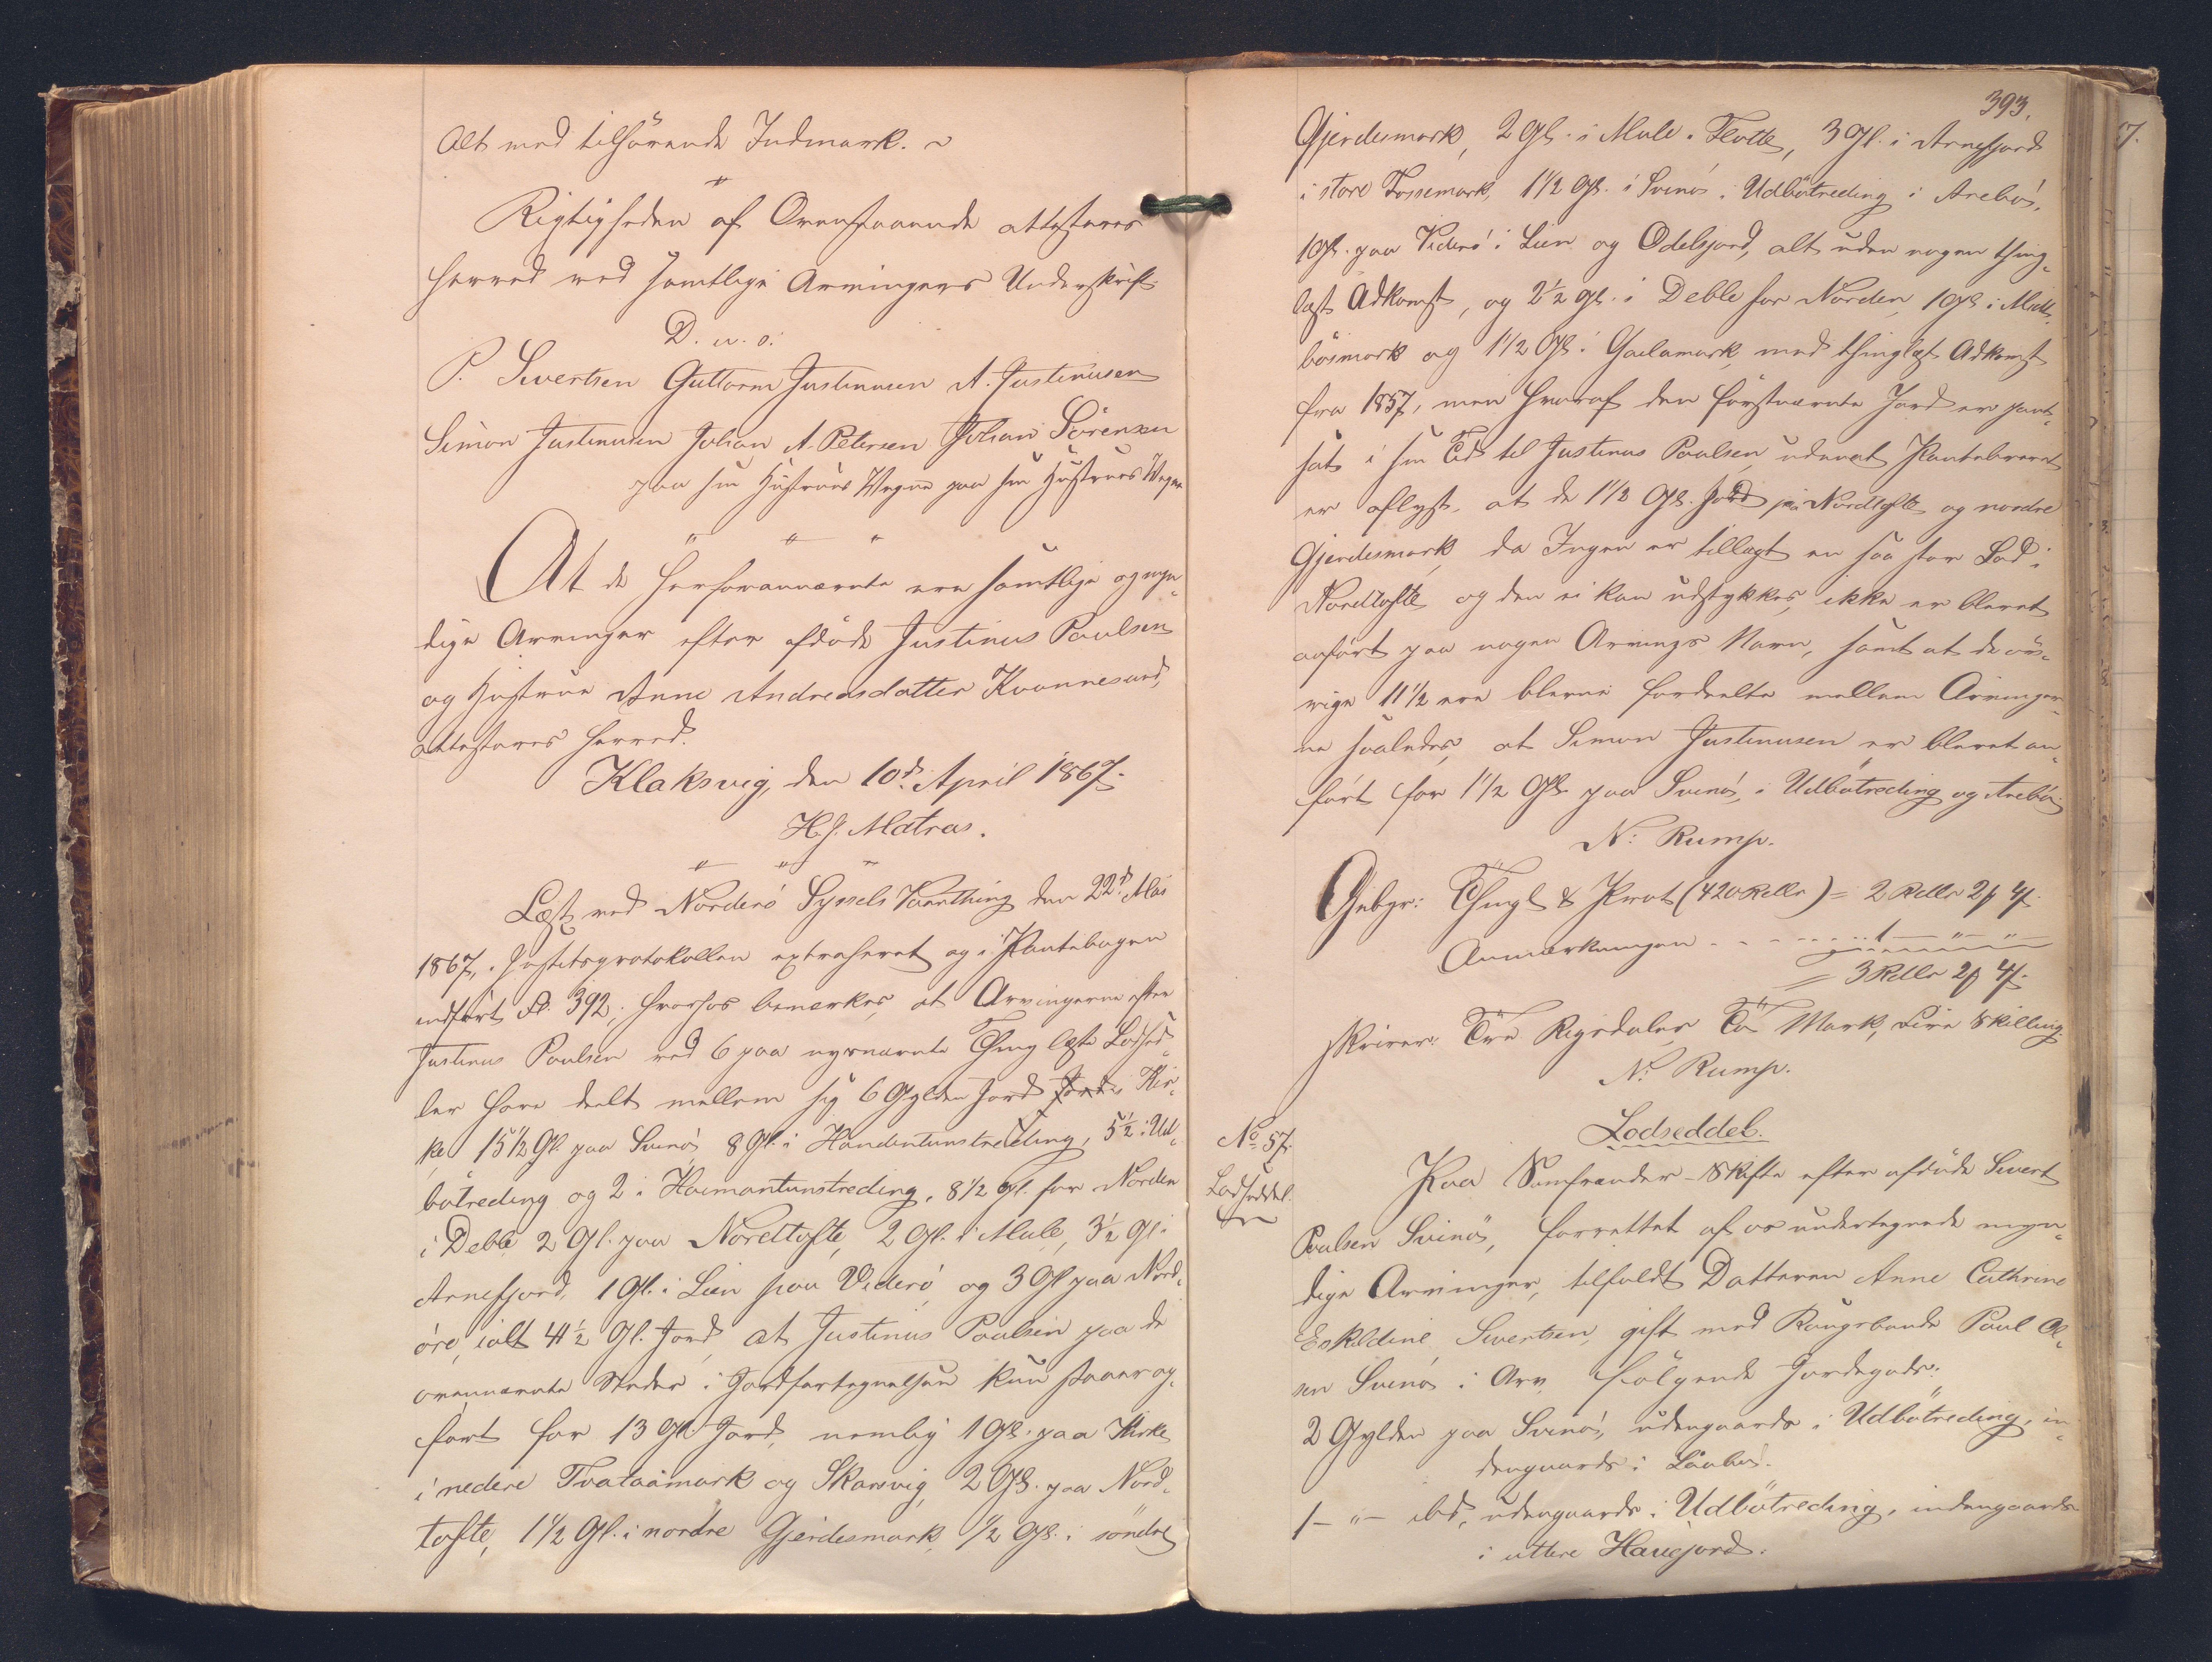 Alt med tilhørende Indmark.
Rigtigheden af Ovenstaaende attesteres
herved ved samtlige Arvingers Underskrift.
D. u. s.
P. Sivertsen Guttorm Justinusen A. Justinusen
Simon Justinusen Johan A. Petersen Johan Sörensen
paa sin Hustrues Vegne paa sin Hustrues Vegne
At de herforannævnte ere samtlige og myn-
dige Arvinger efter afdøde Justinus Poulsen
og Hustrue Anne Andreasdatter Kvannesund,
attesteres herved.
Klaksvig, den 10de April 1867.
H. J. Matras.
Læst ved Norderö Syssels Vaarthing den 22de Mai
1867, i Justitsprotokollen extraheret og i Pantebogen
indført Fol. 392; hvorhos bemærkes, at Arvingerne efter
Justinus Poulsen ved 6 paa nysnævnte Thing læste Lodsed-
ler have deelt mellem sig 6 Gylden Jord i Kir-
ke 15 1/2 Gl. paa Svinö, 8 Gl. i Handentunstreding, 5 1/2 i Ud-
bøtreding og 2 i Heimantunstreding, 8 1/2 Gl. for Norden
i Deble 2 Gl. paa Nordtofte, 2 Gl. i Mule, 3 1/2 Gl. i
Arnefjord, 1 Gl. i Lien paa Viderö og 3 Gl. paa Nord-
öre, ialt 41 1/2 Gl. Jord, at Justinus Poulsen paa de
ovennævnte Steder i Jordfortegnelsen kun staaer op-
ført for 13 Gl. Jord, nemlig 1 Gl. paa Kirke
i nedere Tvataamark og Skarsvig, 2 Gl. paa Nord-
tofte, 1 1/2 Gl. i nordre Gjerdesmark, 1/2 Gl. i söndre
393.
Gjerdesmark, 2 Gl. i Mule i Flotte, 3 Gl. i Arnefjord
i store Fossemark, 1 1/2 Gl. i Svinö i Udbøtreding i Arebö,
1 Gl. paa Viderö i Lien og Odelsjord, alt uden nogen thing-
læst Adkomst, og 2 1/2 Gl. i Deble for Norden, 1 Gl. i Mid-
bøsmark og 1 1/2 Gl. i Gaelamark, med thinglæst Adkomst
fra 1857, men hvoraf den förstnævnte Jord er pant-
sat i sin Tid til Justinus Poulsen, udenat Pantebrevet
er aflyst, at de 1 1/2 Gl. Jord paa Nordtofte og nordre
Gjerdesmark, da Ingen er tillagt en saa stor Lod i
Nordtofte og den ei kan udstykkes, ikke er blevet
anført paa nogen Arvings Navn, samt at de øv-
rige 11 1/2 ere blevne fordeelte mellem Arvinger-
ne saaledes, at Simon Justinusen er blevet an-
fört for 1 1/2 Gl. paa Svinö, i Udbøtreding og Arebö.
N: Rump.
Gebyr: Thingl & Prot (420 Rdlr) = 2 Rdlr 2 # 4 ß.
Anmærkningen - - - - - 1 — " — " —
= 3 Rdlr 2 # 4 ß.
skriver: Tre Rigsdaler To Mark, Fire Skilling.
N: Rump.
No 57.
Lodseddel.
Lodseddel.
Paa Samfrænder-Skifte efter afdøde Sivert
Poulsen Svinö, forrettet af os undertegnede myn-
dige Arvinger, tilfaldt Datteren Anne Cathrine
Eskildine Sivertsen, gift med Kongsbonde Poul Ol-
sen Svinö i Arv følgende Jordegods:
2 Gylden paa Svinö, udengaards i Udbøtreding, in-
dengaards i Laabö.
1 — " — ibd, udengaards i Udbøtreding, indengaards
i uttere Havejord.